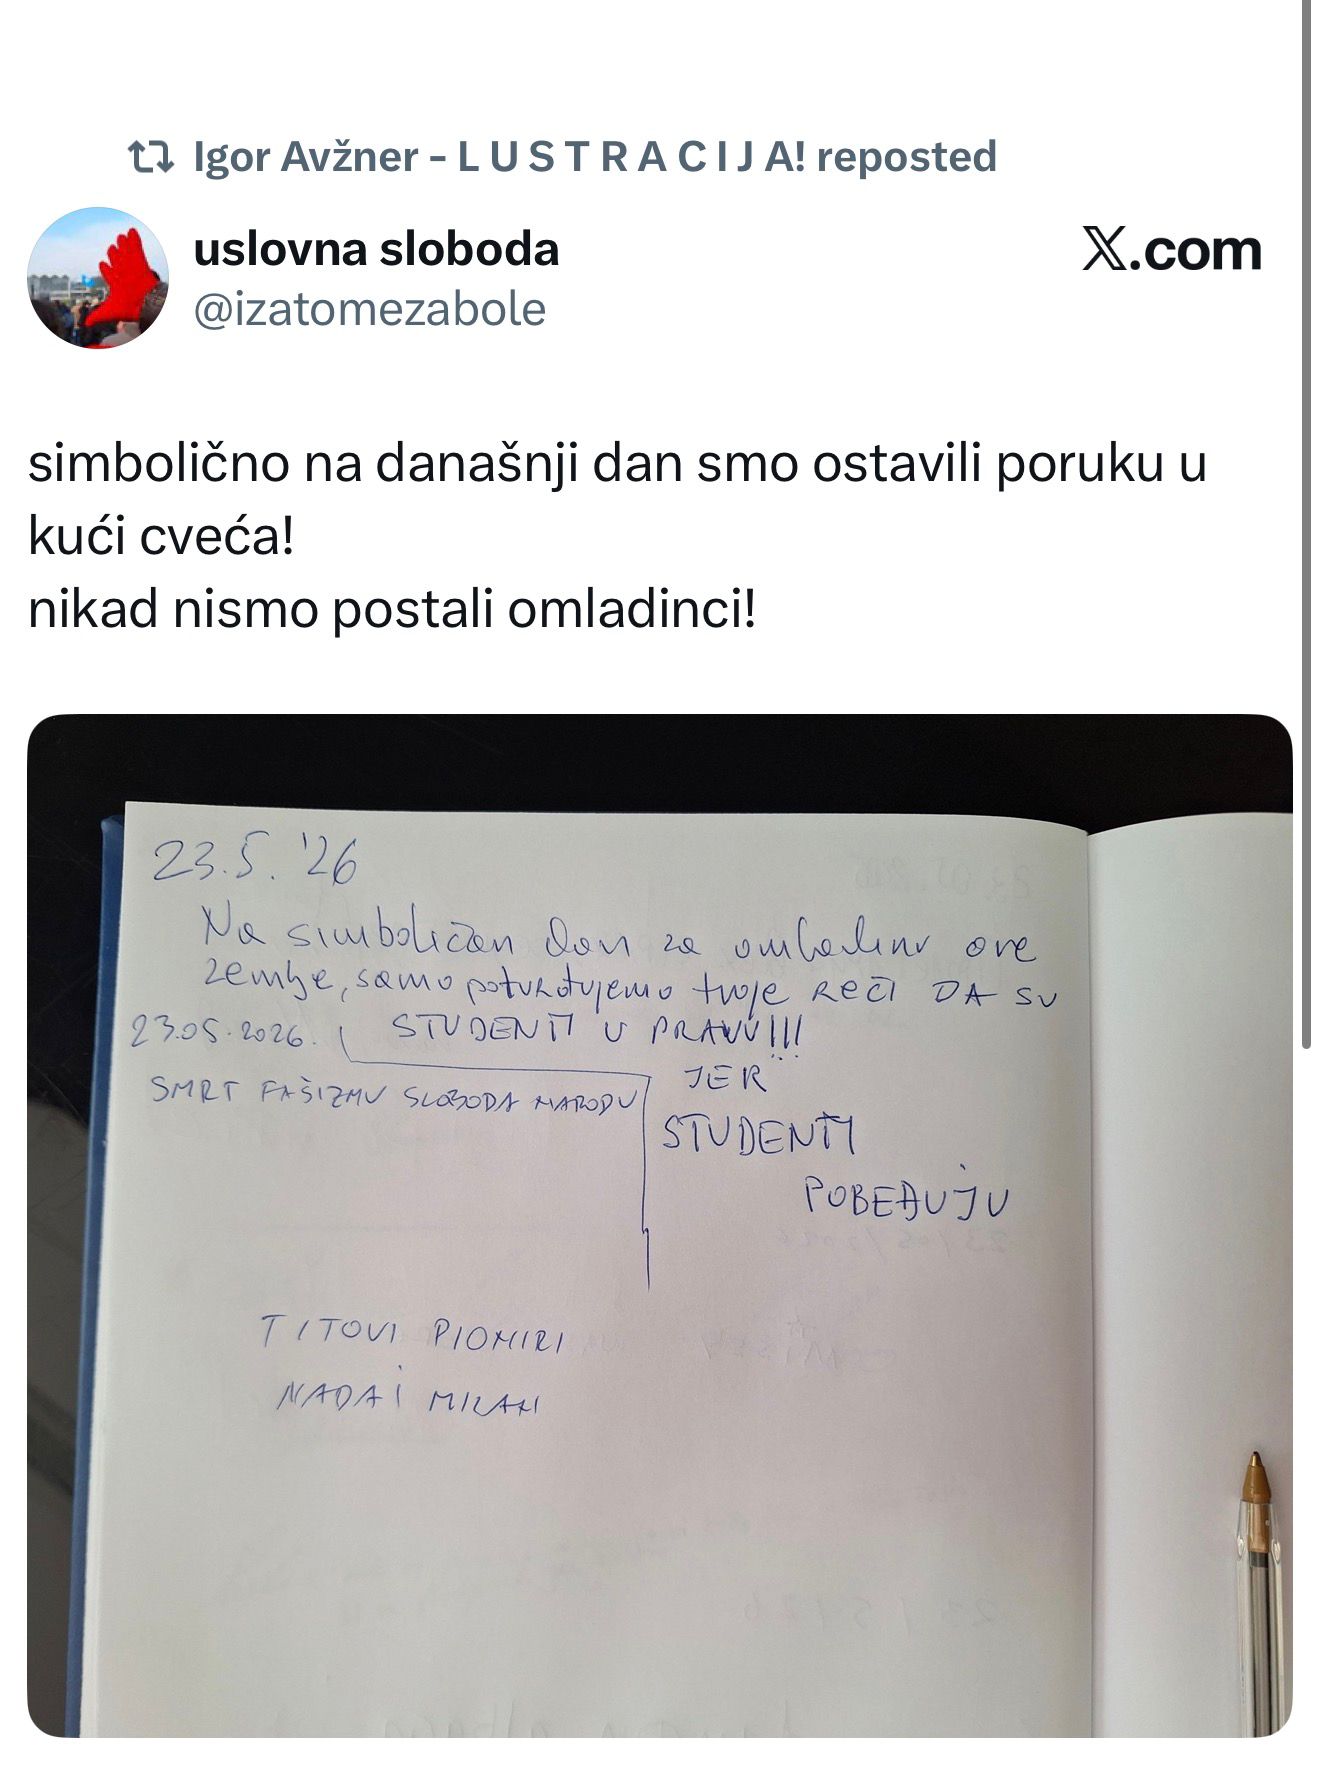 Igor Avžner - L U S T R A C I J A! reposted
uslovna sloboda
X.com
@izatomezabole
simbolično na današnji dan smo ostavili poruku u
kući cveća!
nikad nismo postali omladinci!
23.5. '26
Na simboličan dan za omladinu ove
zemlje, samo potvrđujemo tvoje REČI DA SU
STUDENTI U PRAVU!!!
JER
STUDENTI
POBEĐUJU
23.05.2026.
SMRT FAŠIZMU SLOBODA NARODU
TITOVI PIONIRI
NADA I MILAN